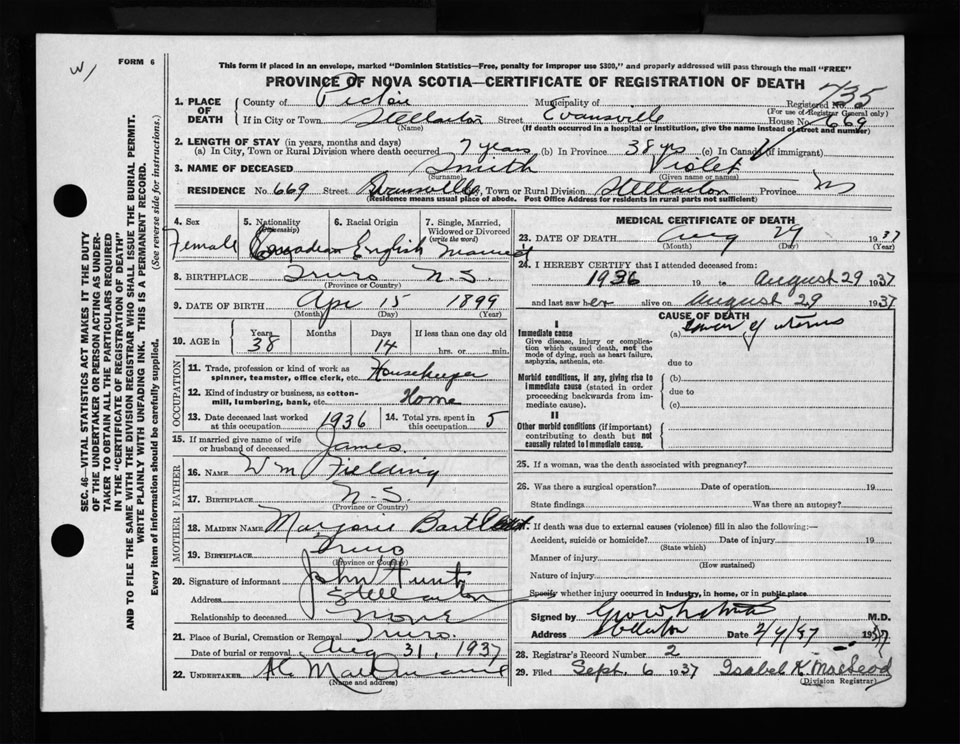 W/
FORM 6
This form if placed in an envelope, marked "Dominion Statistics—Free, penalty for improper use $300," and properly addressed will pass through the mail "FREE"
PROVINCE OF NOVA SCOTIA—CERTIFICATE OF REGISTRATION OF DEATH
735
1. PLACE OF DEATH
County of Pictou Municipality of Registered No.
(For use of Registrar General only)
If in City or Town Stellarton Street Evansville House No. 669
(Name) (If death occurred in a hospital or institution, give the name instead of street and number)
2. LENGTH OF STAY (in years, months and days)
(a) In City, Town or Rural Division where death occurred 7 years (b) In Province 38 yrs (c) In Canada (if immigrant)
3. NAME OF DECEASED Smith Violet
(Surname) (Given name or names)
RESIDENCE No. 669 Street Evansville, Town or Rural Division Stellarton Province NS
(Residence means usual place of abode. Post Office Address for residents in rural parts not sufficient)
4. Sex Female
5. Nationality (Citizenship) Canadian
6. Racial Origin English
7. Single, Married, Widowed or Divorced (write the word) Married
8. BIRTHPLACE Truro N.S.
(Province or Country)
9. DATE OF BIRTH Apr 15 1899
(Month) (Day) (Year)
10. AGE in Years 38 Months Days 14 If less than one day old hrs. or min.
OCCUPATION
11. Trade, profession or kind of work as spinner, teamster, office clerk, etc. Housekeeper
12. Kind of industry or business, as cotton-mill, lumbering, bank, etc. Home
13. Date deceased last worked at this occupation 1936
14. Total yrs. spent in this occupation 5
15. If married give name of wife or husband of deceased James
FATHER
16. NAME Wm Fielding
17. BIRTHPLACE N.S.
(Province or Country)
MOTHER
18. MAIDEN NAME Marjorie Bartlett
19. BIRTHPLACE Truro
(Province or Country)
20. Signature of informant John Hunt
Address Stellarton
Relationship to deceased none
21. Place of Burial, Cremation or Removal Truro.
Date of burial or removal Aug 31, 1937
22. UNDERTAKER
(Name and address)
MEDICAL CERTIFICATE OF DEATH
23. DATE OF DEATH Aug 29 1937
(Month) (Day) (Year)
24. I HEREBY CERTIFY that I attended deceased from:
1936 19 to August 29 1937
and last saw her alive on August 29 1937
CAUSE OF DEATH
I
Immediate cause (a) Cancer of uterus
Give disease, injury or complication which caused death, not the mode of dying, such as heart failure, asphyxia, asthenia, etc.
due to
Morbid conditions, if any, giving rise to immediate cause (stated in order proceeding backwards from immediate cause).
(b)
due to
(c)
II
Other morbid conditions (if important) contributing to death but not causally related to immediate cause.
25. If a woman, was the death associated with pregnancy?
26. Was there a surgical operation? Date of operation 19
State findings Was there an autopsy?
27. If death was due to external causes (violence) fill in also the following:—
Accident, suicide or homicide? Date of injury 19
(State which)
Manner of injury
(How sustained)
Nature of injury
Specify whether injury occurred in Industry, in home, or in public place
Signed by M.D.
Address Stellarton Date 2/9/37 1937
28. Registrar's Record Number 2
29. Filed Sept. 6 1937 Isabel K. MacLeod
(Division Registrar)
SEC. 46—VITAL STATISTICS ACT MAKES IT THE DUTY
OF THE UNDERTAKER OR PERSON ACTING AS UNDER-
TAKER TO OBTAIN ALL THE PARTICULARS REQUIRED
IN THE "CERTIFICATE OF REGISTRATION OF DEATH"
AND TO FILE THE SAME WITH THE DIVISION REGISTRAR WHO SHALL ISSUE THE BURIAL PERMIT.
WRITE PLAINLY WITH UNFADING INK. THIS IS A PERMANENT RECORD.
Every item of information should be carefully supplied. (See reverse side for instructions.)